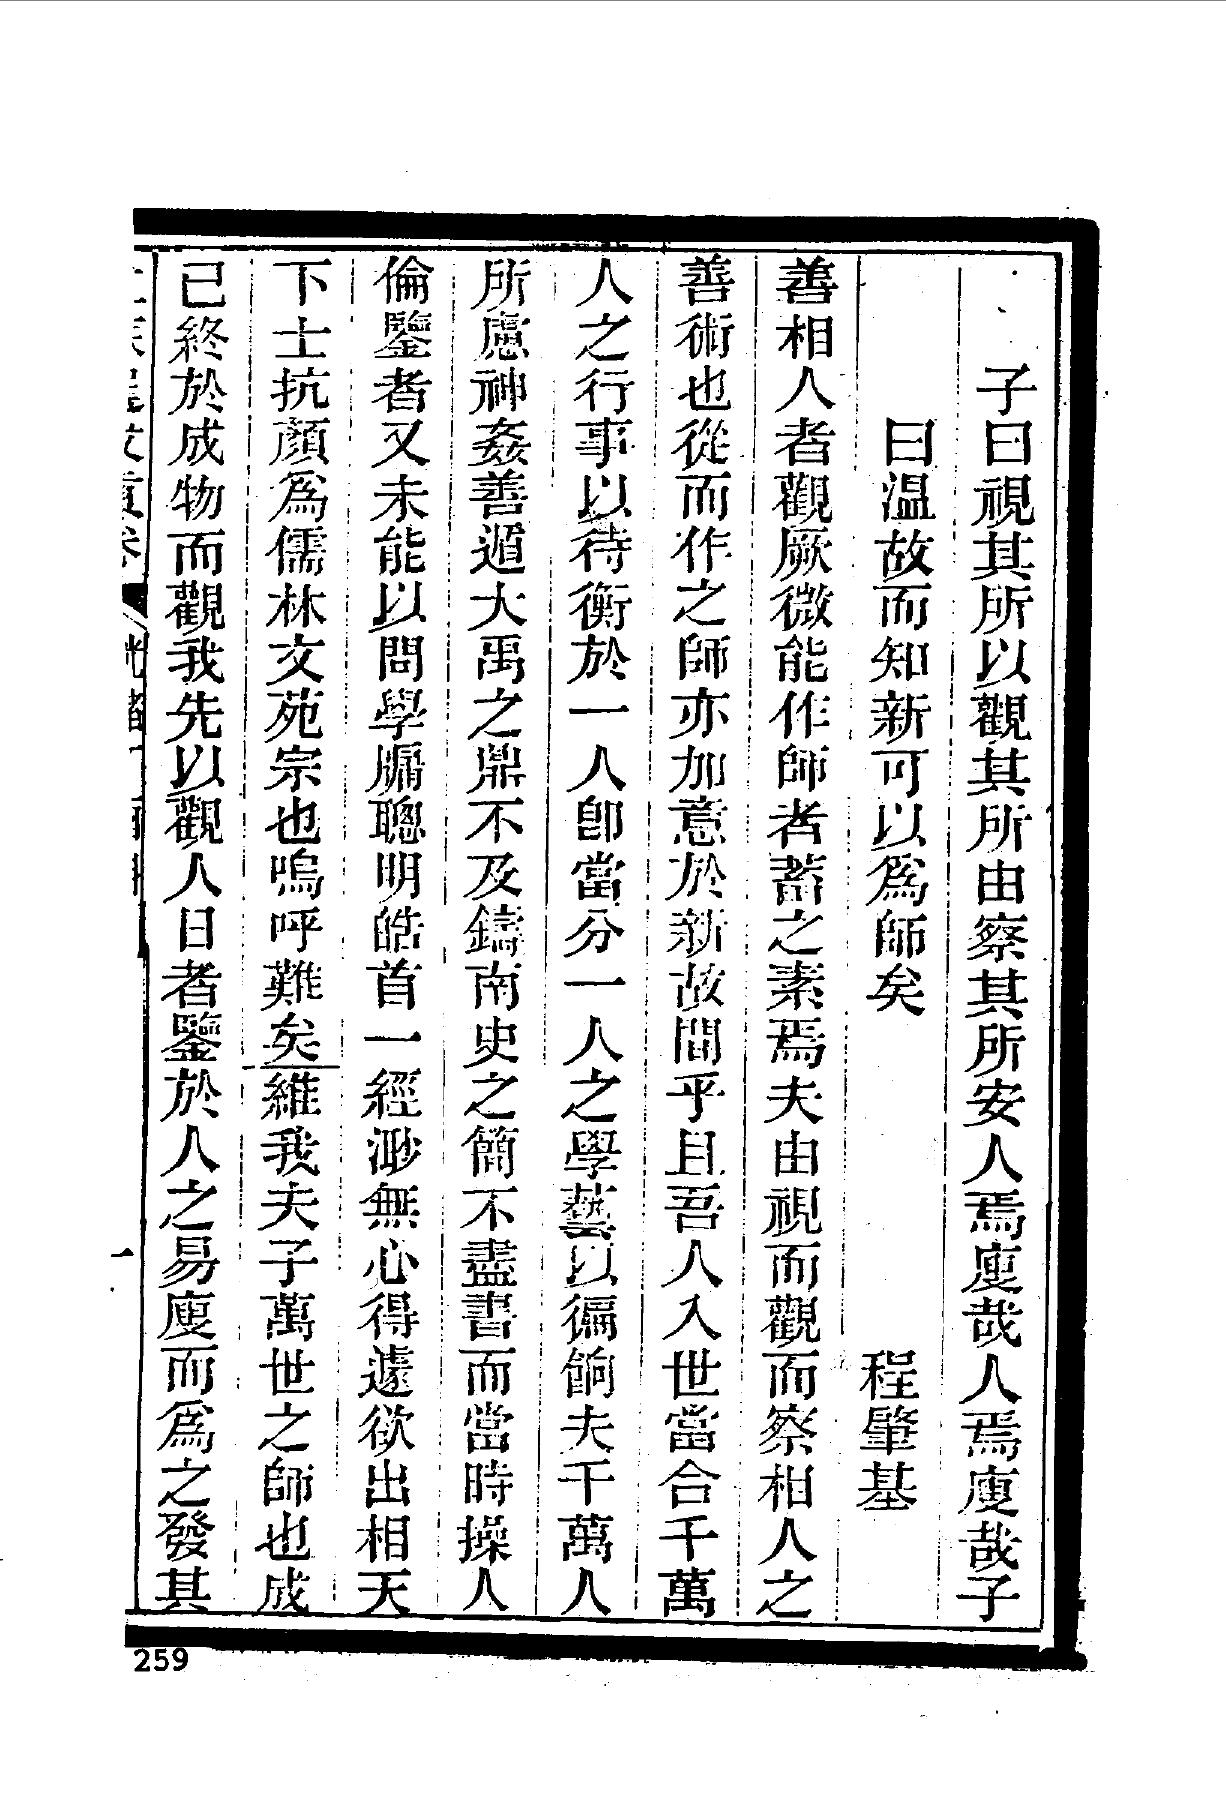 子曰視其所以觀其所由察其所安人焉廋哉人焉廋哉子
曰溫故而知新可以爲師矣
程肇基
善相人者觀厥微能作師者蓄之素焉夫由視而觀而察相人之
善術也從而作之師亦加意於新故間乎且吾人入世當合千萬
人之行事以待衡於一人卽當分一人之學藝以徧餉夫千萬人
所慮神姦善遁大禹之鼎不及鑄南史之簡不盡書而當時操人
倫鑒者又未能以問學牖聰明皓首一經渺無心得遽欲出相天
下士抗顏爲儒林文苑宗也嗚呼難矣維我夫子萬世之師也成
已終於成物而觀我先以觀人日者鑒於人之易廋而爲之發其
卷
光緒丁酉科
一
259